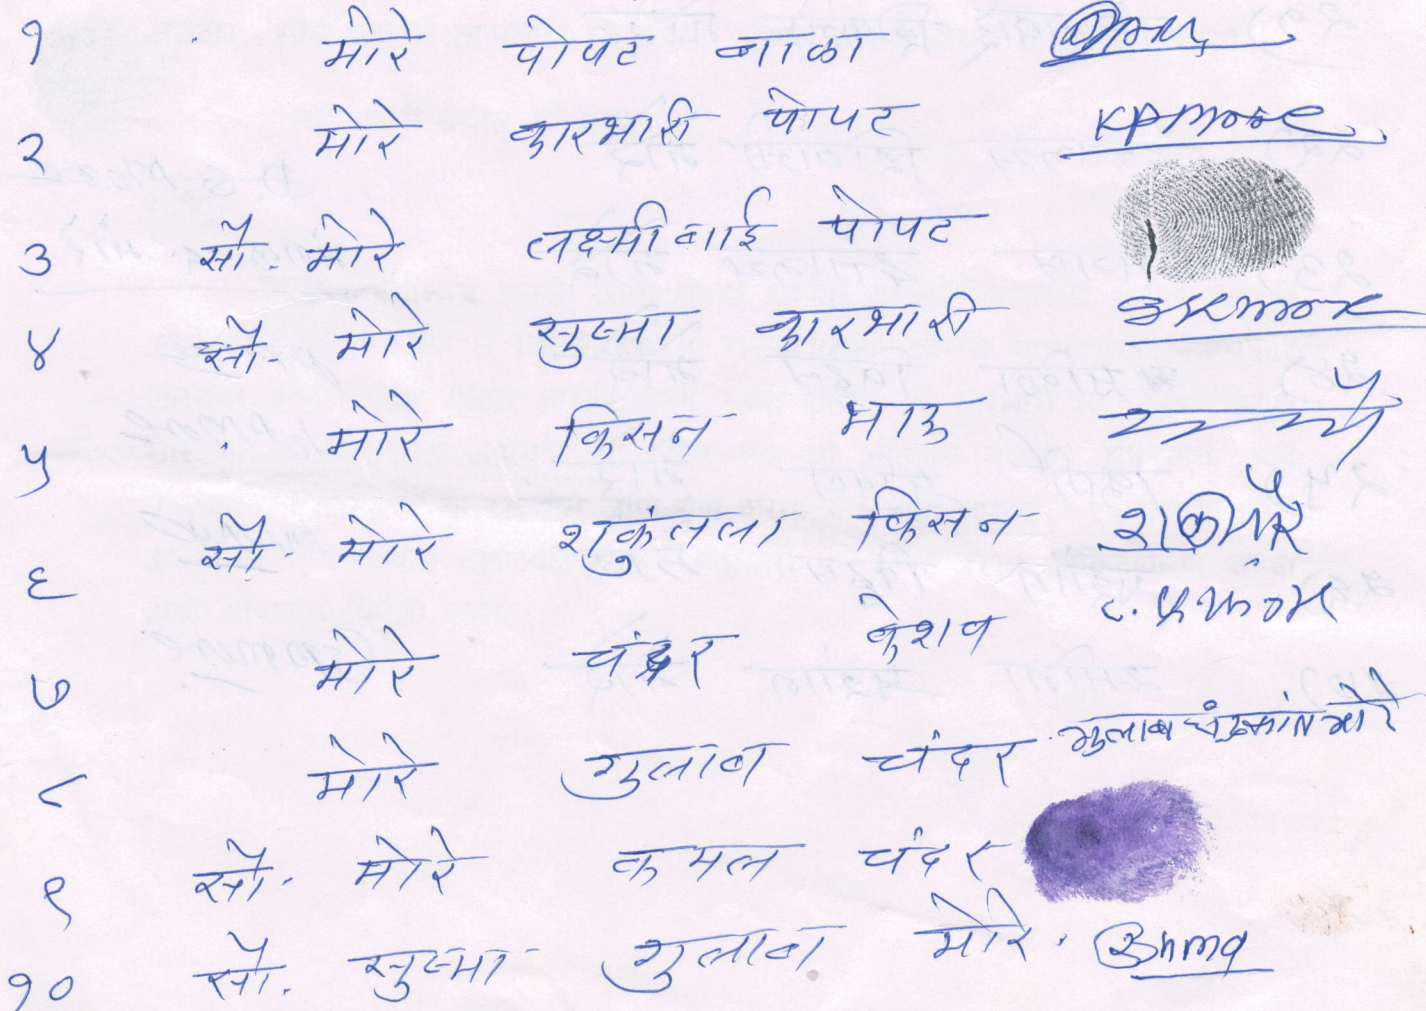 १ मोरे पोपट बाळा
२ मोरे कारभारी पोपट KPmore
३ सौ. मोरे लक्ष्मीबाई पोपट
४ सौ. मोरे सुष्मा कारभारी SKmore
५ मोरे किसन भाऊ
६ सौ. मोरे शकुंतला किसन
७ मोरे चंदर केशव
८ मोरे गुलाब चंदर गुलाब चंद्रकांत मोरे
९ सौ. मोरे कमल चंदर
१० सौ. सुष्मा गुलाब मोरे.